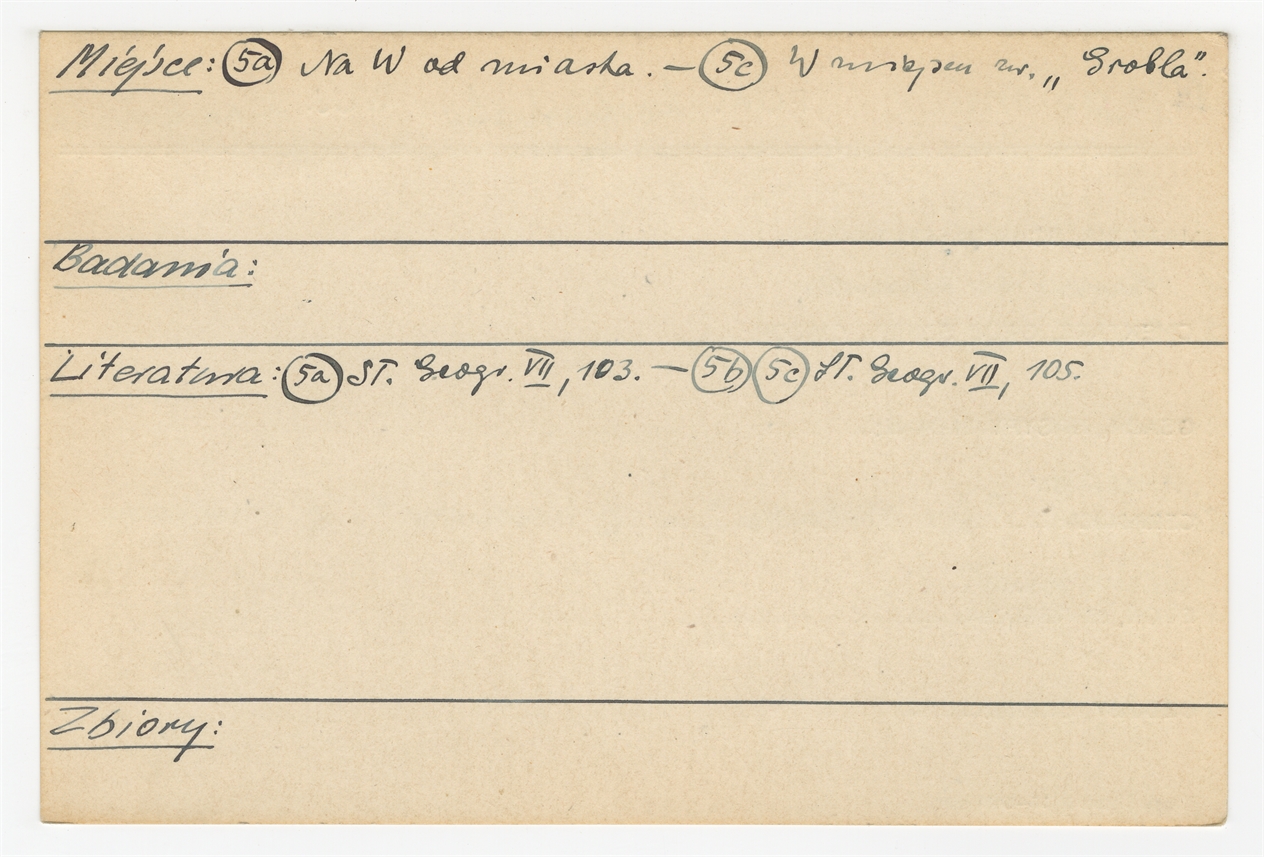 Miejsce: 5a Na W od miasta. – 5c W miejscu zw. „Grobla".
Badania:
Literatura: 5a Sł. Geogr. VII, 103. – 5b 5c Sł. Geogr. VII, 105.
Zbiory: